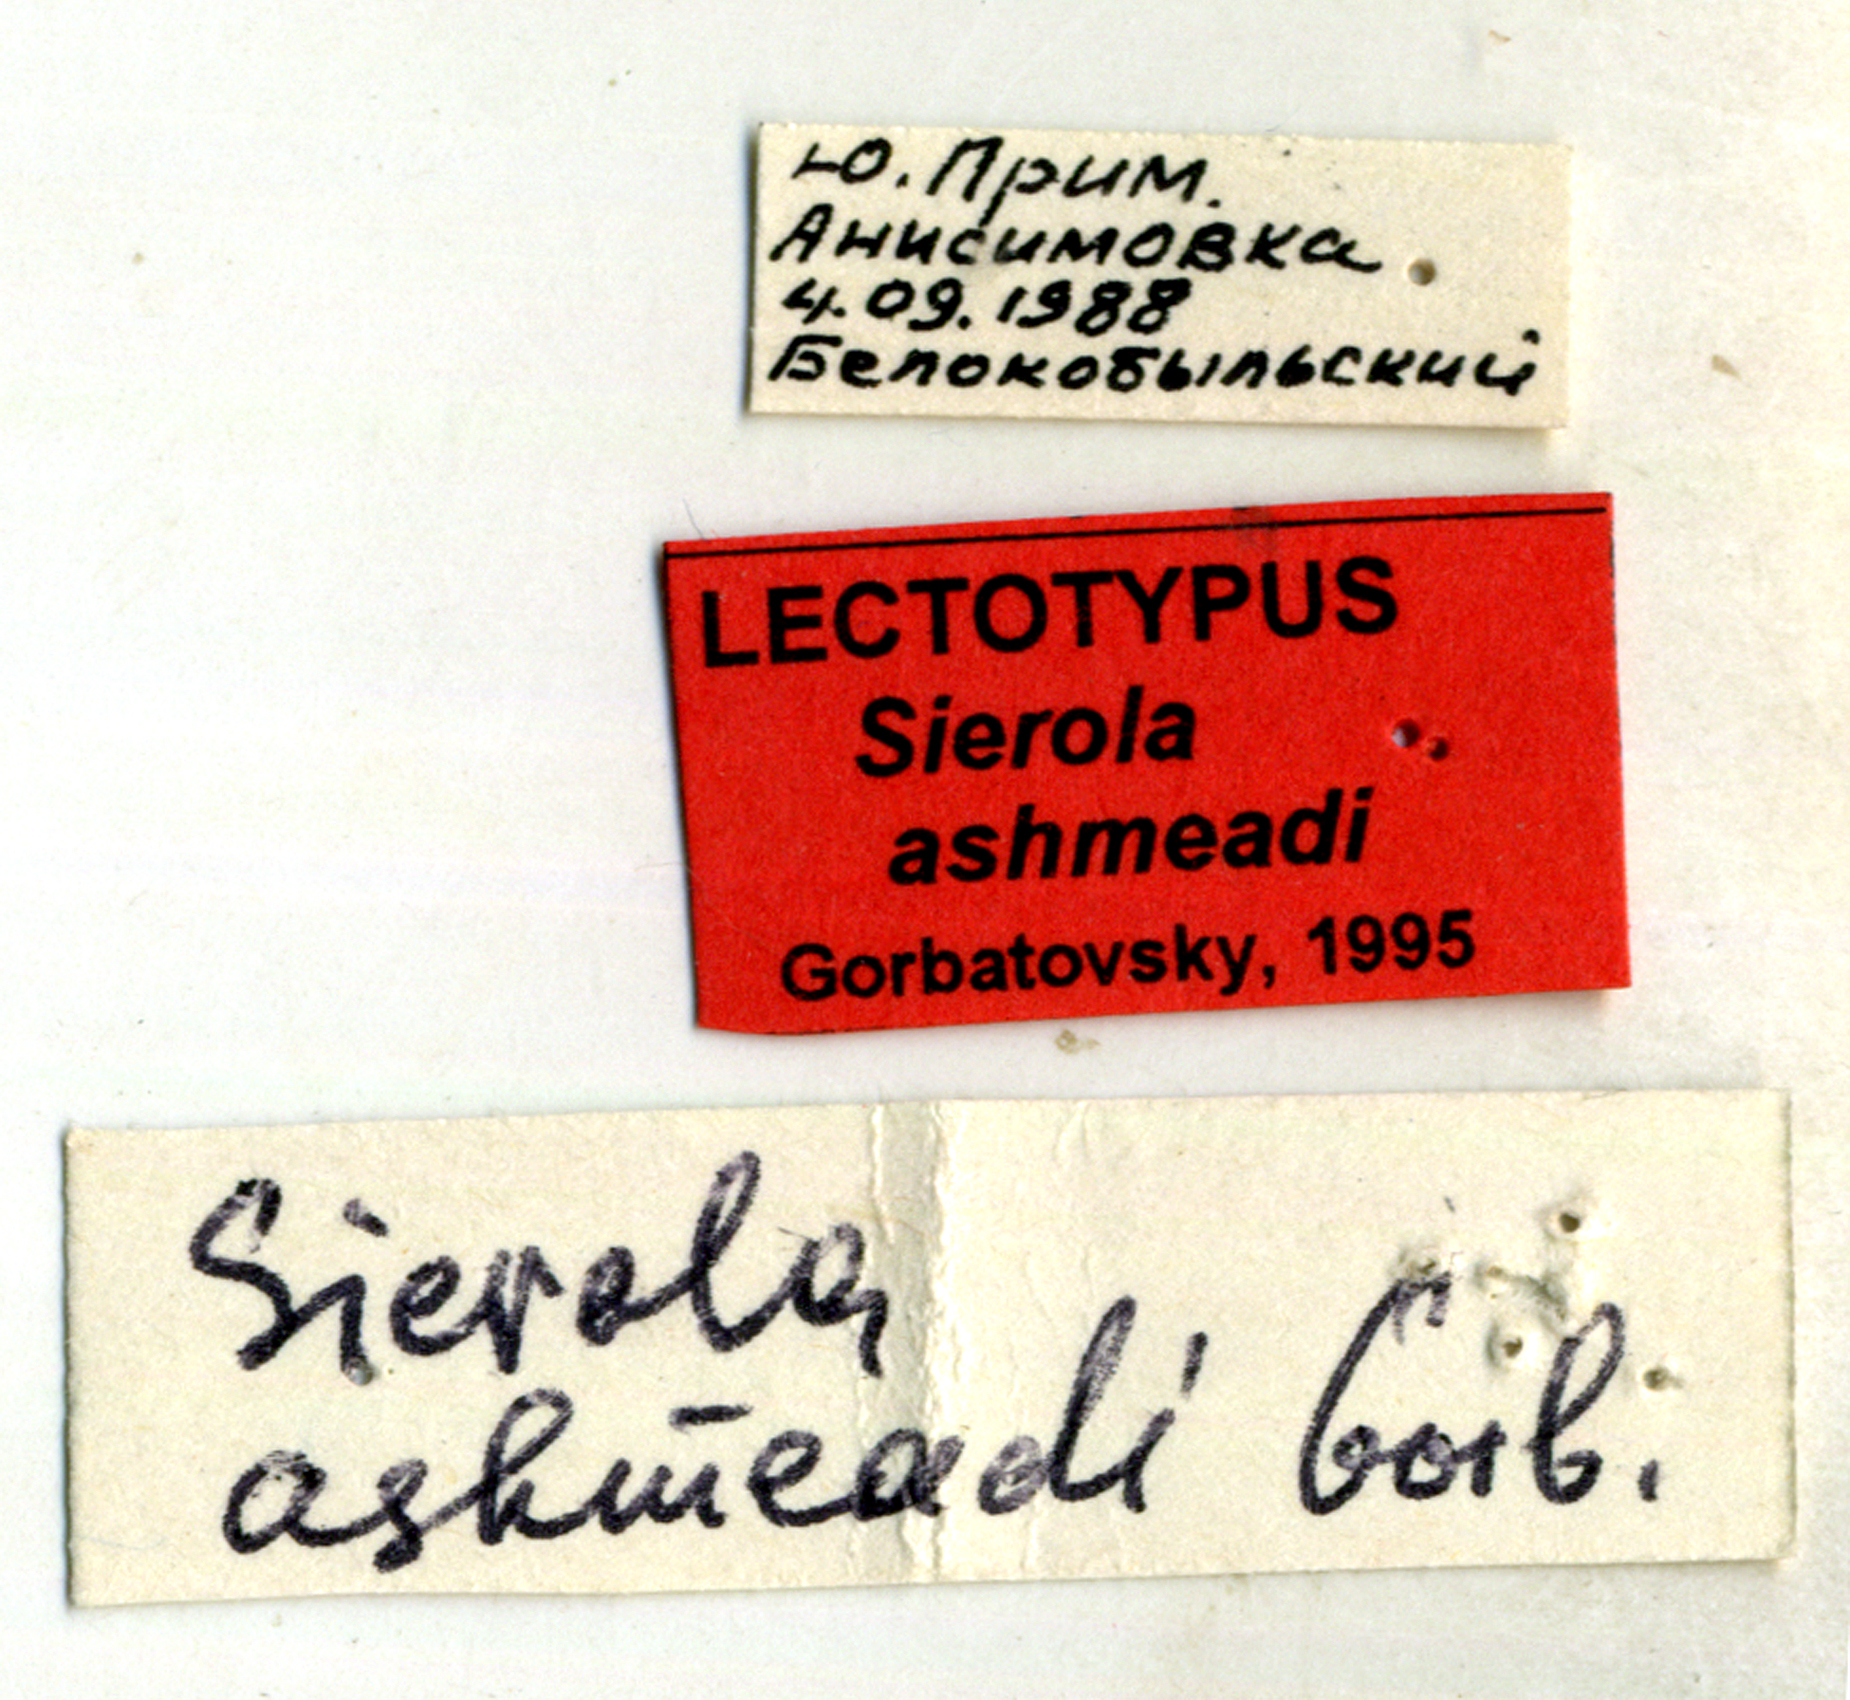 Ю. Прим.
Анисимовка
4.09.1988
Белокобыльский
LECTOTYPUS
Sierola
ashmeadi
Gorbatovsky, 1995
Sierola
ashmeadi Gorb.